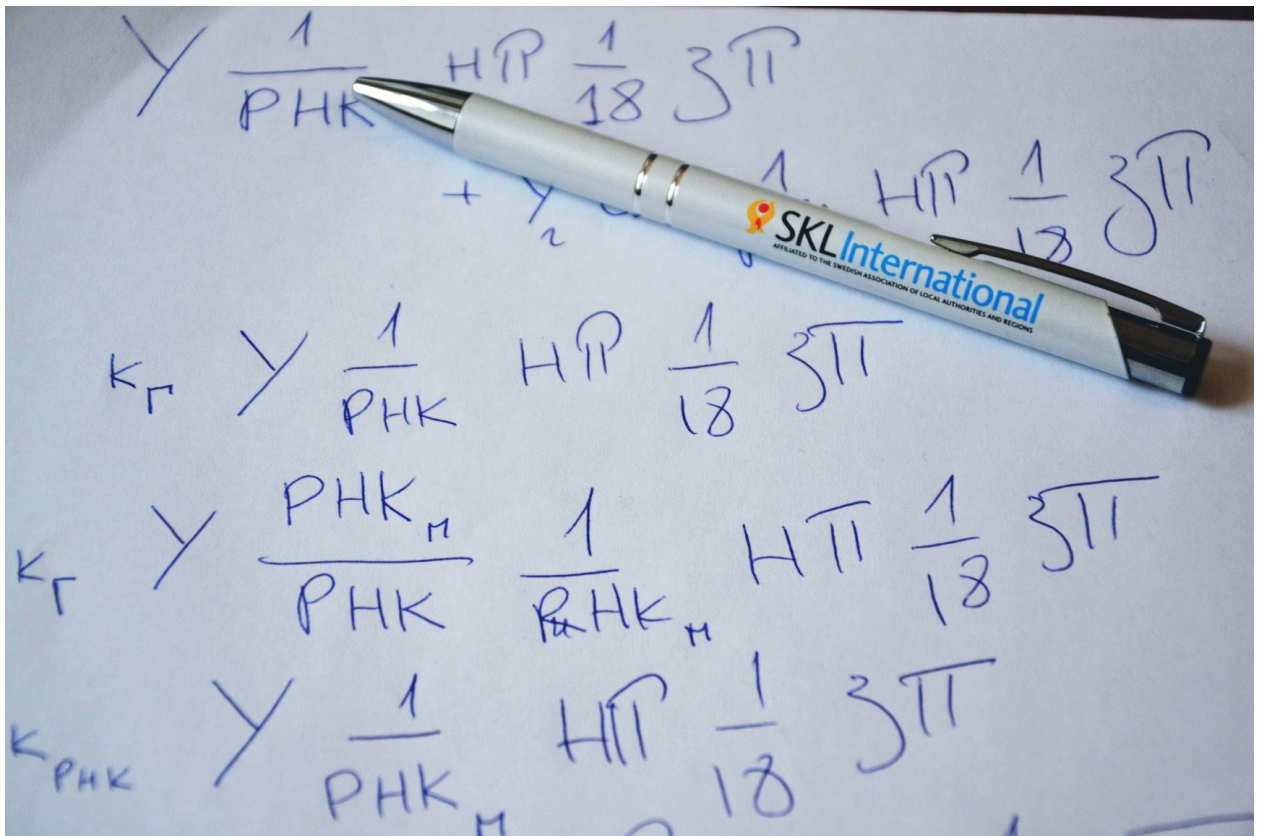 У 1/РНК НП 1/18 ЗП
+ У₂ 1 НП 1/18 ЗП
SKL International
AFFILIATED TO THE SWEDISH ASSOCIATION OF LOCAL AUTHORITIES AND REGIONS
Кг У 1/РНК НП 1/18 ЗП
Кг У РНКм/РНК 1/РНКм НП 1/18 ЗП
КРНК У 1/РНКм НП 1/18 ЗП